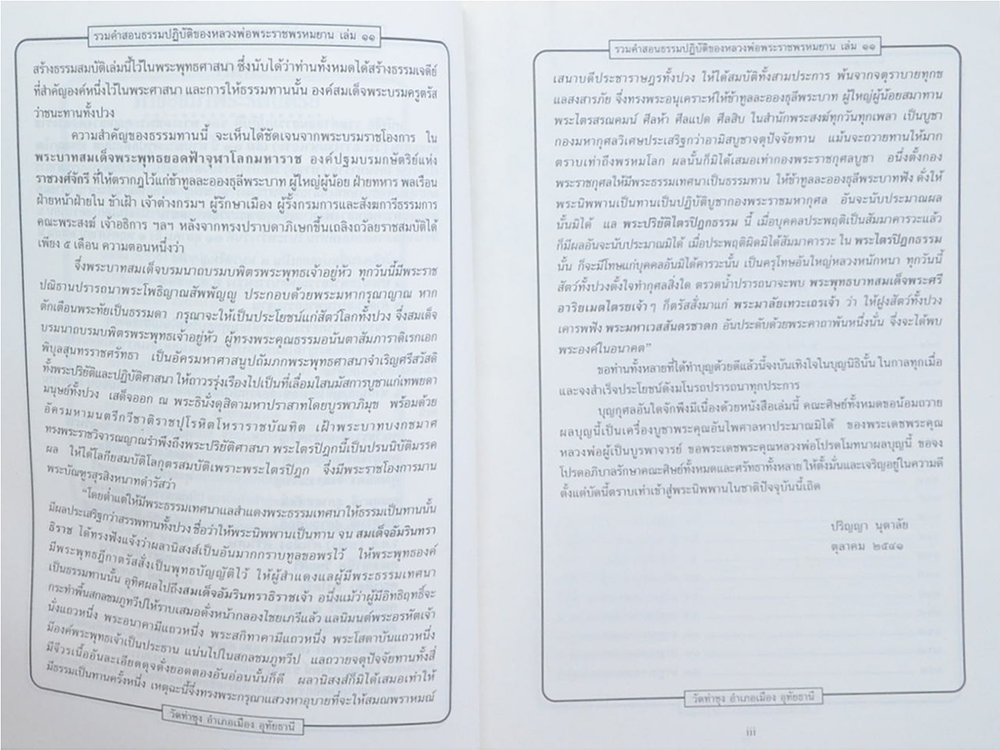 รวมคำสอนธรรมปฏิบัติของหลวงพ่อพระราชพรหมยาน เล่ม ๑๑
สร้างธรรมสมบัติเล่มนี้ไว้ในพระพุทธศาสนา ซึ่งนับได้ว่าท่านทั้งหมดได้สร้างธรรมเจดีย์
ที่สำคัญองค์หนึ่งไว้ในพระศาสนา และการให้ธรรมทานนั้น องค์สมเด็จพระบรมครูตรัส
ว่าชนะทานทั้งปวง
ความสำคัญของธรรมทานนี้ จะเห็นได้ชัดเจนจากพระบรมราชโองการ ใน
พระบาทสมเด็จพระพุทธยอดฟ้าจุฬาโลกมหาราช องค์ปฐมบรมกษัตริย์แห่ง
ราชวงศ์จักรี ที่ให้ตรากฎไว้แก่ข้าทูลละอองธุลีพระบาท ผู้ใหญ่ผู้น้อย ฝ่ายทหาร พลเรือน
ฝ่ายหน้าฝ่ายใน ข้าเฝ้า เจ้าต่างกรมฯ ผู้รักษาเมือง ผู้รั้งกรมการและสังฆการีธรรมการ
คณะพระสงฆ์ เจ้าอธิการ ฯลฯ หลังจากทรงปราบดาภิเษกขึ้นเถลิงถวัลยราชสมบัติได้
เพียง ๕ เดือน ความตอนหนึ่งว่า
จึ่งพระบาทสมเด็จบรมนาถบรมบพิตรพระพุทธเจ้าอยู่หัว ทุกวันนี้มีพระราช
ปณิธานปรารถนาพระโพธิญาณสัพพัญญู ประกอบด้วยพระมหากรุณาญาณ หาก
ตักเตือนพระทัยเป็นธรรมดา กรุณาจะให้เป็นประโยชน์แก่สัตว์โลกทั้งปวง จึ่งสมเด็จ
บรมนาถบรมบพิตรพระพุทธเจ้าอยู่หัว ผู้ทรงพระคุณธรรมอนันตาสัมภาราดิเรกเอก
พิบุลสุนทรราชศรัทธา เป็นอัครมหาศาสนูปถัมภกพระพุทธศาสนาจำเริญศรีสวัสดิ
ทั้งพระปริยัติและปฏิบัติศาสนา ให้ถาวรรุ่งเรืองไปเป็นที่เลื่อมใสนมัสการบูชาแก่เทพยดา
มนุษย์ทั้งปวง เสด็จออก ณ พระธินั่งดุสิตามหาปราสาทโดยบูรพาภิมุข พร้อมด้วย
อัครมหามนตรีกวีชาติราชปุโรหิตโหราราชบัณฑิต เฝ้าพระบาทบงกชมาศ
ทรงพระราชวิจารณญาณรำพึงถึงพระปริยัติศาสนา พระไตรปิฎกนี้เป็นปรนนิบัติมรรค
ผล ให้ได้โลกียสมบัติโลกุตรสมบัติเพราะพระไตรปิฎก จึ่งมีพระราชโองการมาน
พระบัณฑูรสุรสิงหนาทดำรัสว่า
“โดยต่ำแต่ให้มีพระธรรมเทศนาแลสำแดงพระธรรมเทศนาให้ธรรมเป็นทานนั้น
มีผลประเสริฐกว่าสรรพทานทั้งปวง ชื่อว่าให้พระนิพพานเป็นทาน จน สมเด็จอัมรินทรา
ธิราช ได้ทรงฟังแจ้งว่าผลานิสงส์เป็นอันมากกราบทูลขอพรไว้ ให้พระพุทธองค์
มีพระพุทธฎีกาตรัสสั่งเป็นพุทธบัญญัติไว้ ให้ผู้สำแดงแลผู้มีพระธรรมเทศนา
เป็นธรรมทานนั้น อุทิศผลไปถึงสมเด็จอัมรินทราธิราชเจ้า อนึ่งแม้ว่าผู้มีอิทธิฤทธิ์จะ
กระทำพื้นสกลชมภูทวีปให้ราบเสมอดั่งหน้ากลองไชยเภรีแล้ว แลนิมนต์พระอรหัตเจ้า
นั่งแถวหนึ่ง พระอนาคามีแถวหนึ่ง พระสกิทาคามีแถวหนึ่ง พระโสดาบันแถวหนึ่ง
มีองค์พระพุทธเจ้าเป็นประธาน แน่นไปในสกลชมภูทวีป แลถวายจตุปัจจัยทานทั้งสี่
มีจีวรเนื้ออันละเอียดดุจดั่งยอดตองอันอ่อนนั้นก็ดี ผลานิสงส์ก็มิได้เสมอเท่าให้
มีธรรมเป็นทานครั้งหนึ่ง เหตุฉะนี้จึ่งทรงพระกรุณาแสวงหาอุบายที่จะให้สมณพราหมณ์
วัดท่าซุง อำเภอเมือง อุทัยธานี
รวมคำสอนธรรมปฏิบัติของหลวงพ่อพระราชพรหมยาน เล่ม ๑๑
เสนาบดีประชาราษฎรทั้งปวง ให้ได้สมบัติทั้งสามประการ พ้นจากจตุราบายทุกข
แลสงสารภัย จึ่งทรงพระอนุเคราะห์ให้ข้าทูลละอองธุลีพระบาท ผู้ใหญ่ผู้น้อยสมาทาน
พระไตรสรณคมน์ ศีลห้า ศีลแปด ศีลสิบ ในสำนักพระสงฆ์ทุกวันทุกเพลา เป็นบูชา
กองมหากุศลวิเศษประเสริฐกว่าอามิสบูชาจตุปัจจัยทาน แม้นจะถวายทานให้มาก
ตราบเท่าถึงพรหมโลก ผลนั้นก็มิได้เสมอเท่ากองพระราชกุศลบูชา อนึ่งตั้งกอง
พระราชกุศลให้มีพระธรรมเทศนาเป็นธรรมทาน ให้ข้าทูลละอองธุลีพระบาทฟัง ดั่งให้
พระนิพพานเป็นทานเป็นปฏิบัติบูชากองพระราชมหากุศล อันจะนับประมาณผล
นั้นมิได้ แล พระปริยัติไตรปิฎกธรรม นี้ เมื่อบุคคลประพฤติเป็นสัมมาคารวะแล้ว
ก็มีผลอันจะนับประมาณมิได้ เมื่อประพฤติผิดมิได้สัมมาคารวะ ใน พระไตรปิฎกธรรม
นั้น ก็จะมีโทษแก่บุคคลอันมิได้คารวะนั้น เป็นครุโทษอันใหญ่หลวงหนักหนา ทุกวันนี้
สัตว์ทั้งปวงตั้งใจทำกุศลสิ่งใด ตรวดน้ำปรารถนาจะพบ พระพุทธบาทสมเด็จพระศรี
อาริยเมตไตรยเจ้าฯ ก็ตรัสสั่งมาแก่ พระมาลัยเทวะเถรเจ้า ว่า ให้ฝูงสัตว์ทั้งปวง
เคารพฟัง พระมหาเวสสันดรชาดก อันประดับด้วยพระคาถาพันหนึ่งนั้น จึ่งจะได้พบ
พระองค์ในอนาคต”
ขอท่านทั้งหลายที่ได้ทำบุญด้วยดีแล้วนี้จงบันเทิงใจในบุญนิธินั้น ในกาลทุกเมื่อ
และจงสำเร็จประโยชน์ดังมโนรถปรารถนาทุกประการ
บุญกุศลอันใดจักพึงมีเนื่องด้วยหนังสือเล่มนี้ คณะศิษย์ทั้งหมดขอน้อมถวาย
ผลบุญนี้เป็นเครื่องบูชาพระคุณอันไพศาลหาประมาณมิได้ ของพระเดชพระคุณ
หลวงพ่อผู้เป็นบูรพาจารย์ ขอพระเดชพระคุณหลวงพ่อโปรดโมทนาผลบุญนี้ ขอจง
โปรดอภิบาลรักษาคณะศิษย์ทั้งหมดและศรัทธาทั้งหลาย ให้ตั้งมั่นและเจริญอยู่ในความดี
ตั้งแต่บัดนี้ตราบเท่าเข้าสู่พระนิพพานในชาติปัจจุบันนี้เถิด
ปริญญา นุตาลัย
ตุลาคม ๒๕๔๑
วัดท่าซุง อำเภอเมือง อุทัยธานี
iii